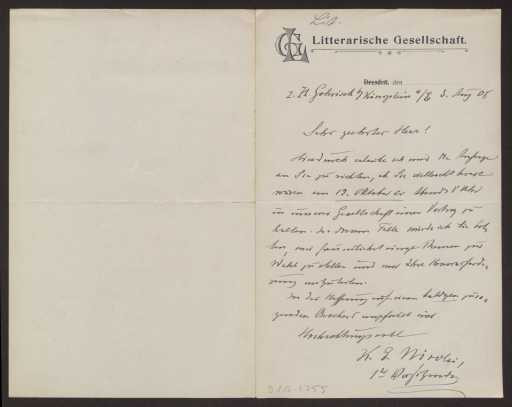 Lit.
LG Litterarische Gesellschaft.
Dresden, den
z. Zt. Gohrisch b/ Königstein a/E 3. Aug 05
Sehr geehrter Herr!
Hierdurch erlaube ich mir die Anfrage
an Sie zu richten, ob Sie vielleicht bereit
wären am 19. Oktober er Abends 8 Uhr
in unserer Gesellschaft einen Vortrag zu
halten. In diesem Falle würde ich Sie bit-
ten, mir freundlichst einige Themen zur
Wahl zu stellen und mir Ihre Honorarforde-
rung mitzuteilen.
In der Hoffnung auf einen baldigen zusa-
genden Bescheid empfiehlt sich
Hochachtungsvoll
K. E. Nicolai,
1ter Vorsitzender